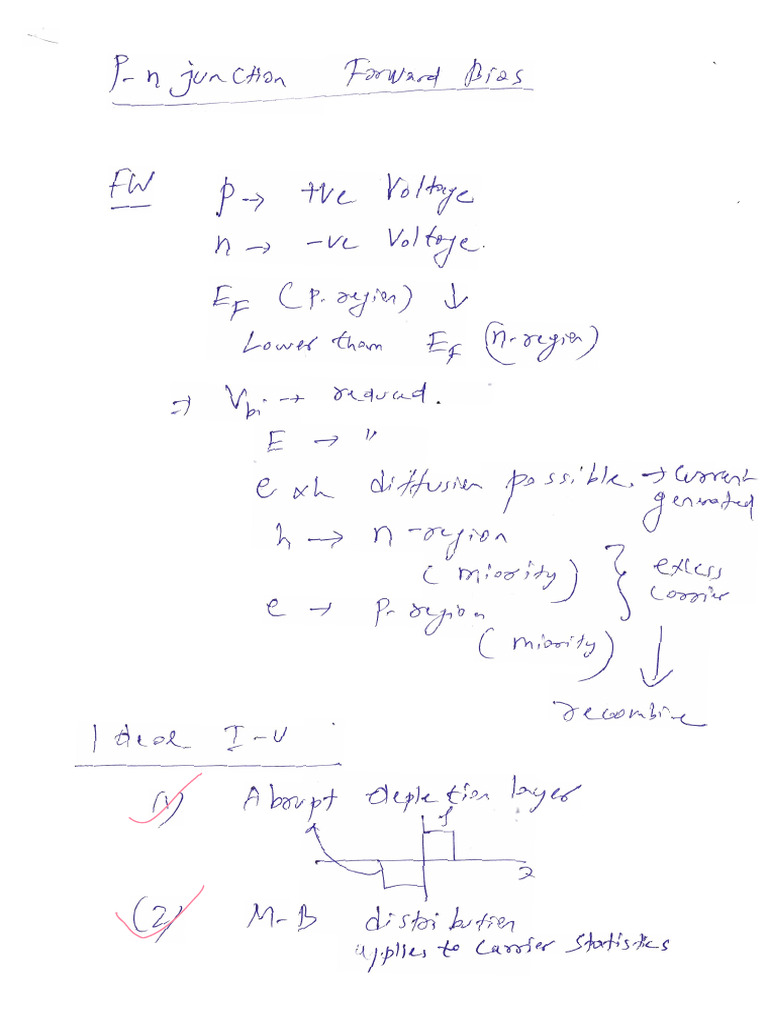 P-n junction Forward Bias
FW p → +ve Voltage
n → -ve Voltage.
EF (p-region) ↓
Lower than EF (n-region)
⇒ Vbi → reduced.
E → "
e & h diffusion possible. → current
generated
h → n-region
(miority) } excess
carrier
e → p-region
(miority)
recombine
Ideal I-V
(1) Abrupt depletion layer
x
(2) M-B distribution
applies to carrier statistics